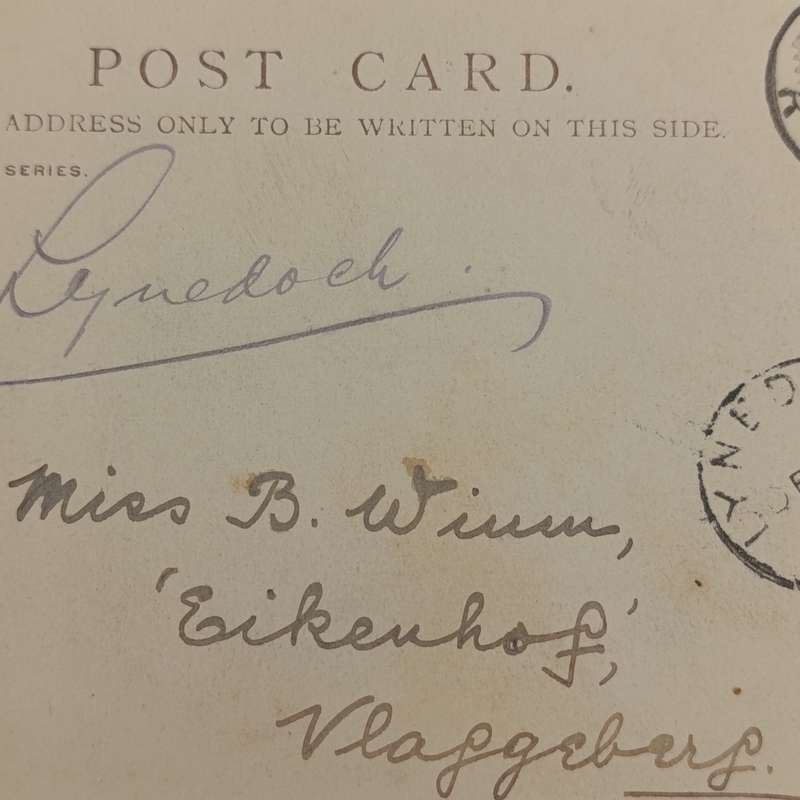 POST CARD.
ADDRESS ONLY TO BE WRITTEN ON THIS SIDE.
SERIES.
Lynedoch.
LYNEDO
Miss B. Winm,
'Eikenhof',
Vlaggeberg.